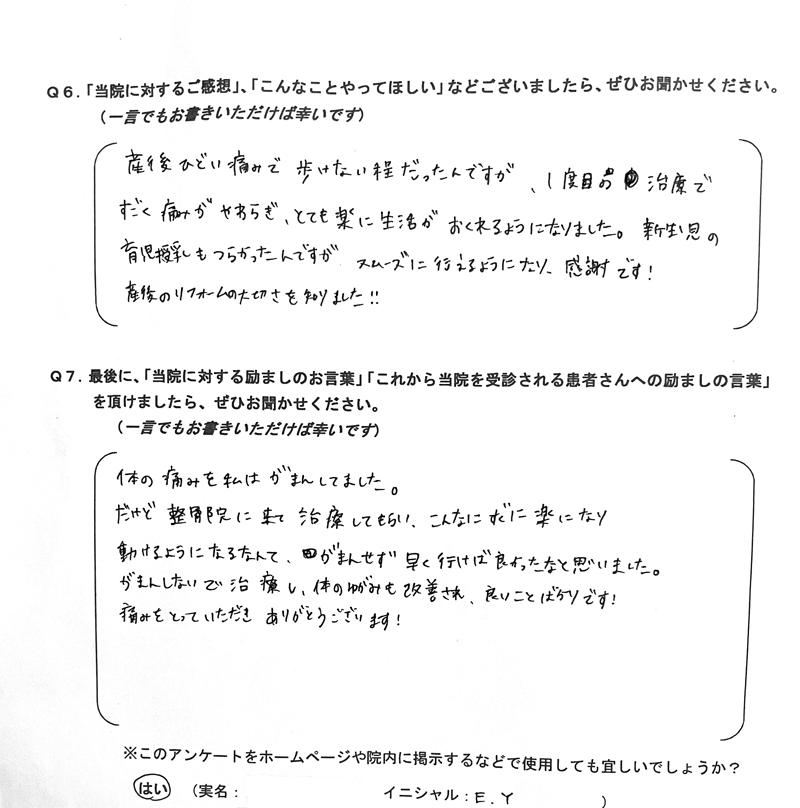 Q6.「当院に対するご感想」、「こんなことやってほしい」などございましたら、ぜひお聞かせください。
（一言でもお書きいただけば幸いです）
産後ひどい痛みで 歩けない程だったんですが、1度目の治療で
すごく痛みが やわらぎ、とても楽に生活が おくれるようになりました。新生児の
育児授乳もつらかったんですが スムーズに行えるようになり、感謝です!
産後のリフォームの大切さを知りました!!
Q7.最後に、「当院に対する励ましのお言葉」「これから当院を受診される患者さんへの励ましの言葉」
を頂けましたら、ぜひお聞かせください。
（一言でもお書きいただけば幸いです）
体の痛みを私は がまんしてました。
だけど 整骨院に来て 治療してもらい、こんなにすぐに楽になり
動けるようになるなんて、がまんせず 早く行けば良かったなと思いました。
がまんしないで治療し、体のゆがみも改善され、良いことばかりです!
痛みをとっていただき ありがとうございます!
※このアンケートをホームページや院内に掲示するなどで使用しても宜しいでしょうか？
はい （実名： イニシャル：E.Y ）